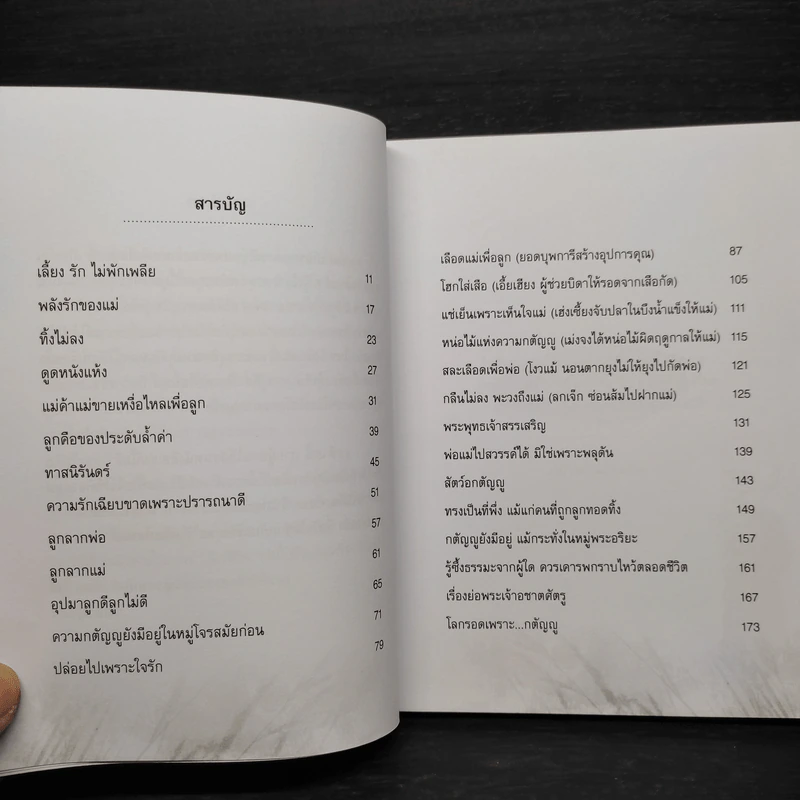 สารบัญ
เลี้ยง รัก ไม่พักเพลีย 11
พลังรักของแม่ 17
ทิ้งไม่ลง 23
ดูดหนังแห้ง 27
แม่ค้าแม่ขายเหงื่อไหลเพื่อลูก 31
ลูกคือของประดับล้ำค่า 39
ทาสนิรันดร์ 45
ความรักเฉียบขาดเพราะปรารถนาดี 51
ลูกลากพ่อ 57
ลูกลากแม่ 61
อุปมาลูกดีลูกไม่ดี 65
ความกตัญญูยังมีอยู่ในหมู่โจรสมัยก่อน 71
ปล่อยไปเพราะใจรัก 79
เลือดแม่เพื่อลูก (ยอดบุพการีสร้างอุปการคุณ) 87
โฮกใส่เสือ (เอี้ยเฮียง ผู้ช่วยบิดาให้รอดจากเสือกัด) 105
แช่เย็นเพราะเห็นใจแม่ (เฮ่งเซี้ยงจับปลาในบึงน้ำแข็งให้แม่) 111
หน่อไม้แห่งความกตัญญู (เม่งจงได้หน่อไม้ผิดฤดูกาลให้แม่) 115
สละเลือดเพื่อพ่อ (โงวแม้ นอนตากยุงไม่ให้ยุงไปกัดพ่อ) 121
กลืนไม่ลง พะวงถึงแม่ (ลกเจ๊ก ซ่อนส้มไปฝากแม่) 125
พระพุทธเจ้าสรรเสริญ 131
พ่อแม่ไปสวรรค์ได้ มิใช่เพราะพลุดัน 139
สัตว์อกตัญญู 143
ทรงเป็นที่พึ่ง แม้แก่คนที่ถูกลูกทอดทิ้ง 149
กตัญญูยังมีอยู่ แม้กระทั่งในหมู่พระอริยะ 157
รู้ซึ้งธรรมะจากผู้ใด ควรเคารพกราบไหว้ตลอดชีวิต 161
เรื่องย่อพระเจ้าอชาตศัตรู 167
โลกรอดเพราะ...กตัญญู 173